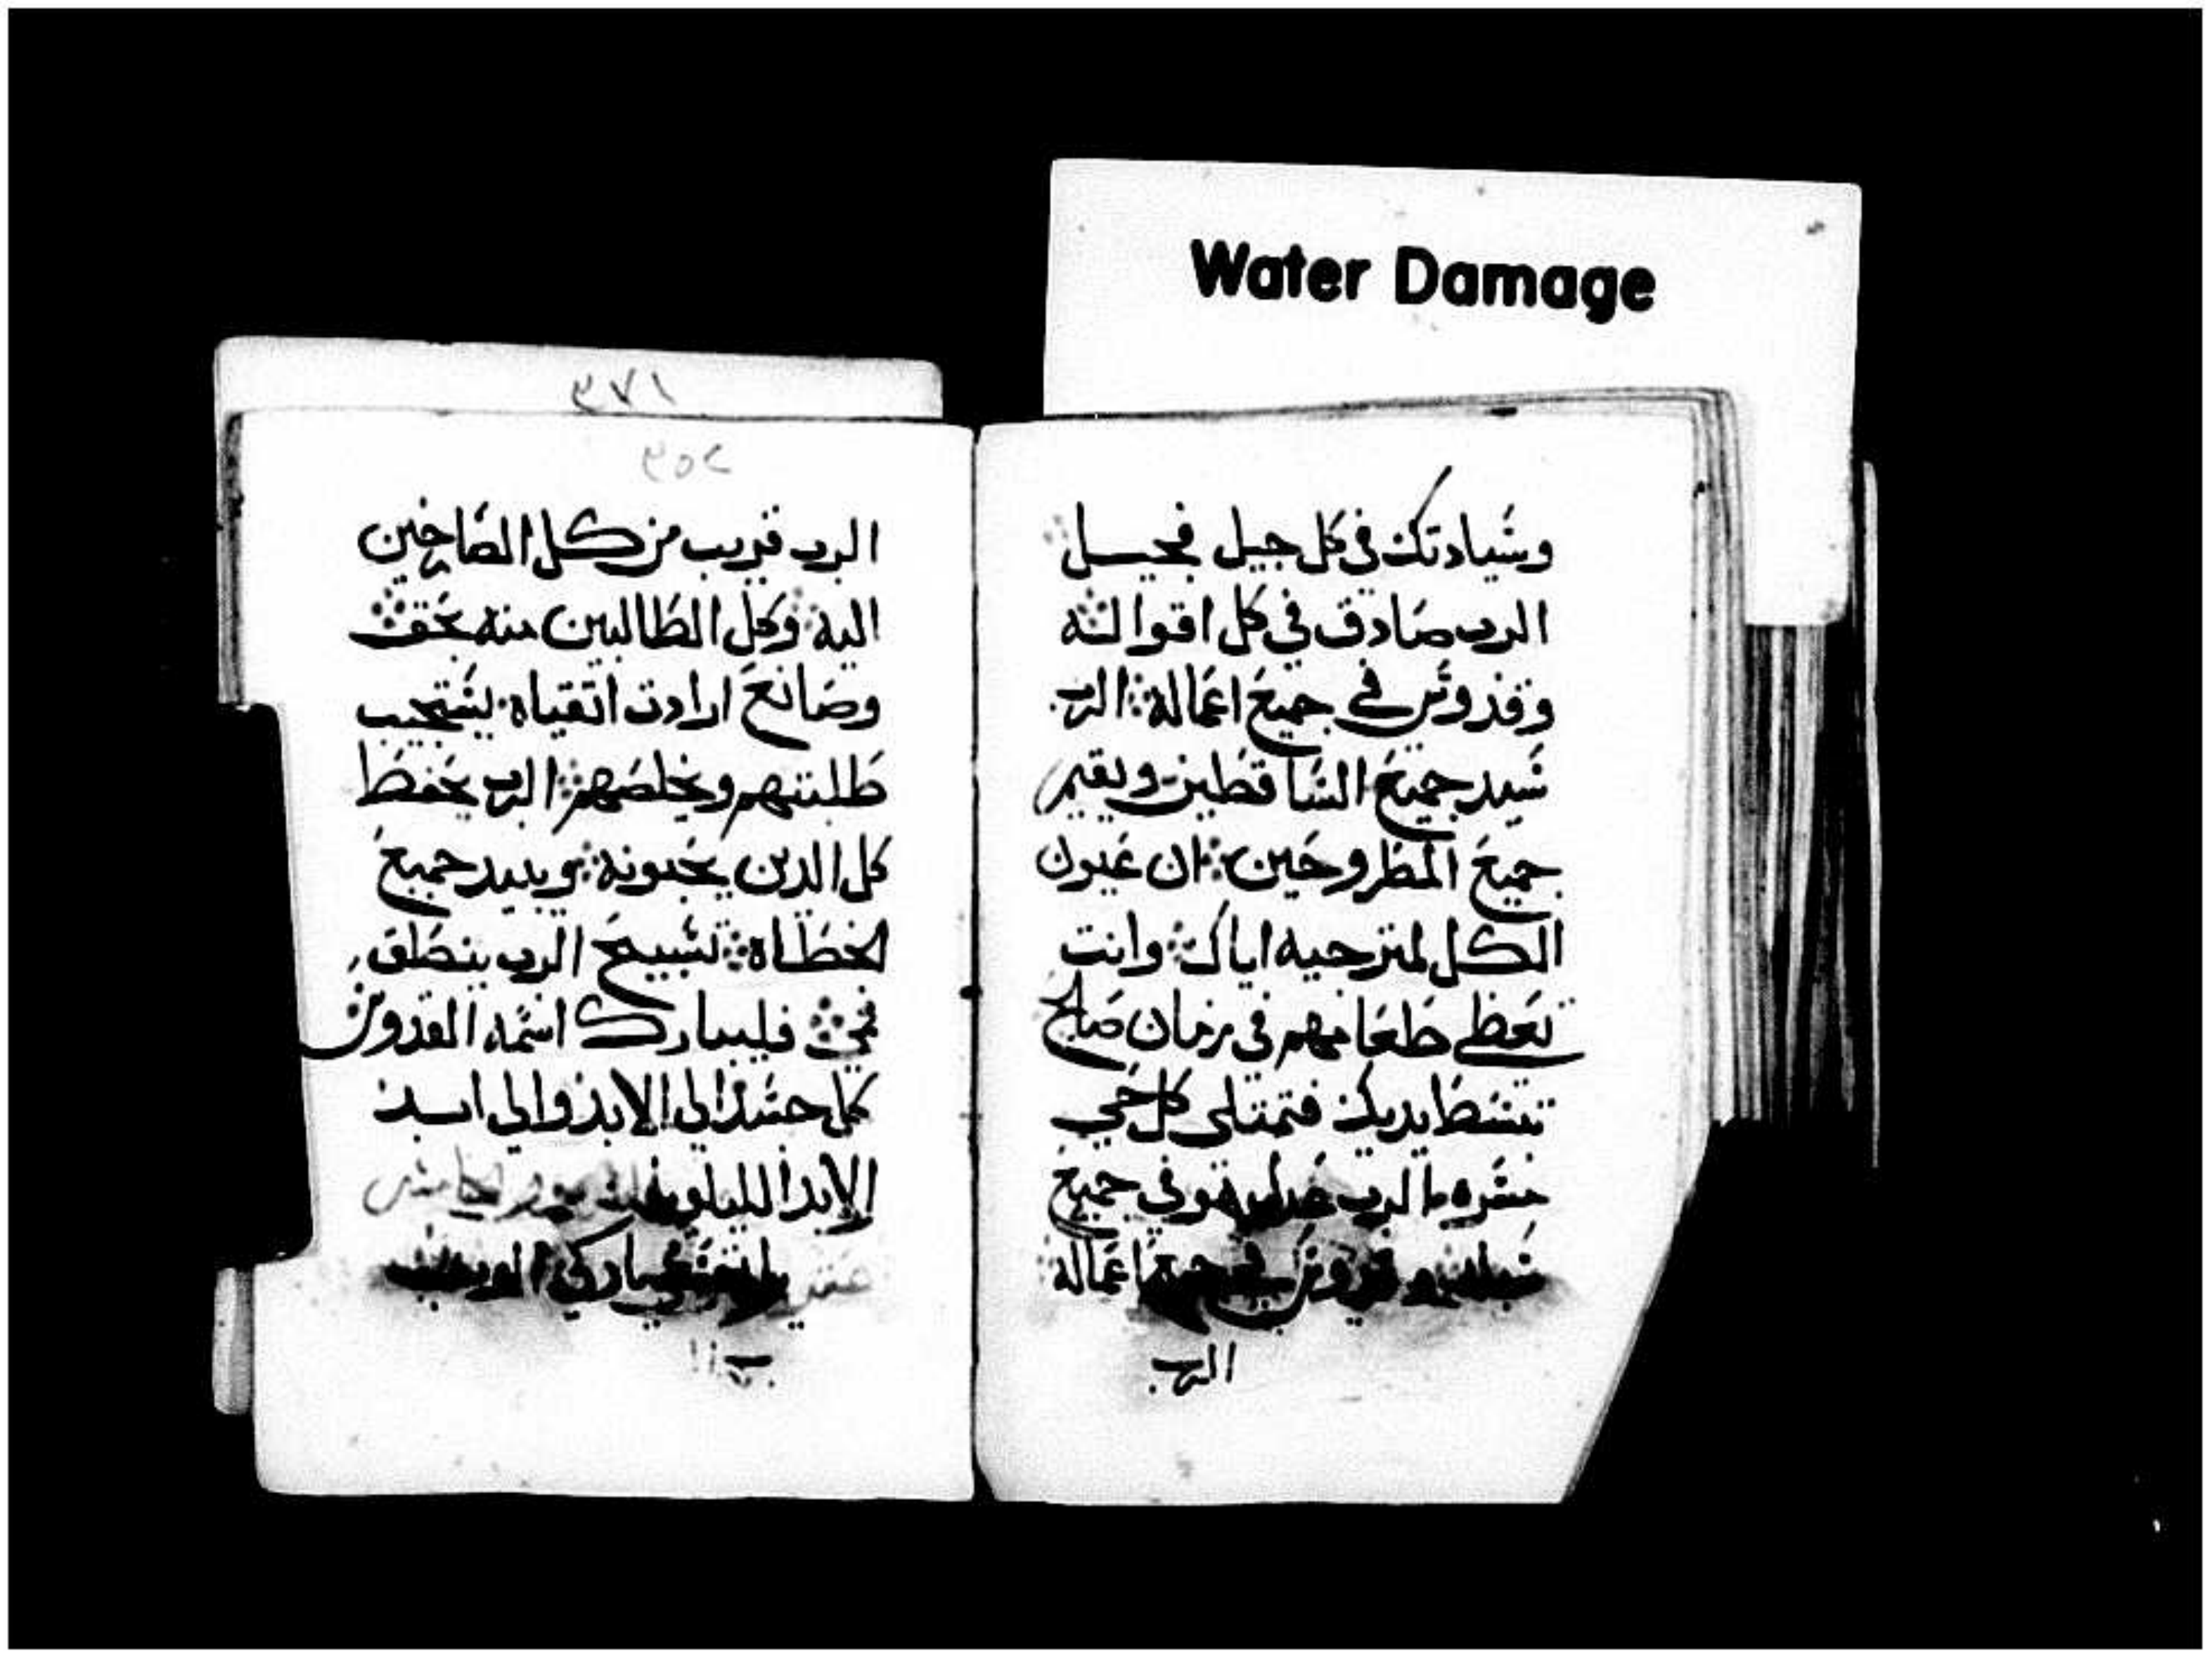 Water Damage
وسيادتك في كل جيل فجيل
الرب صادق في كل اقواله
وقدوس في جميع اعماله الرب
سيد جميع الساقطين ويقيم
جميع المطروحين ان عيون
الكل لمترجيه اياك وانت
تعطي طعامهم في زمان صالح
تبسط يديك فتمتلي كل حي
مسره الرب عدل هو في جميع
سبله وقدوس في جميع اعماله
الرب
٣٧١
٣٥٢
الرب قريب من كل الصارخين
اليه وكل الطالبين منه بحق
وصانع ارادت اتقياه يستجيب
طلبتهم ويخلصهم الرب يحفظ
كل الدين يحبونه ويبيد جميع
الخطاه تسبيح الرب ينطق
فمي فليبارك اسمه القدوس
كل جسد الي الابد والي ابد
الابد الليلويا
يا نفسي باركي الرب